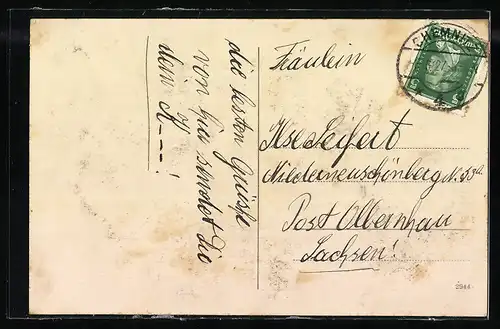 die besten Grüsse
von hier sendet Dir
dein K---!
Fräulein
Ilse Seifert
Niederneuschönberg N. 53a
Post Olbernhau
Sachsen!
CHEMNITZ
2944